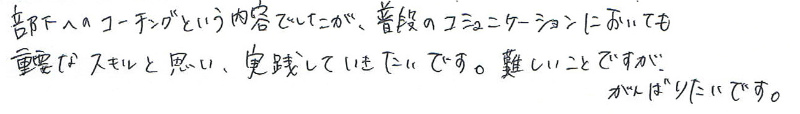 部下へのコーチングという内容でしたが、普段のコミュニケーションにおいても
重要なスキルと思い、実践していきたいです。難しいことですが、
がんばりたいです。